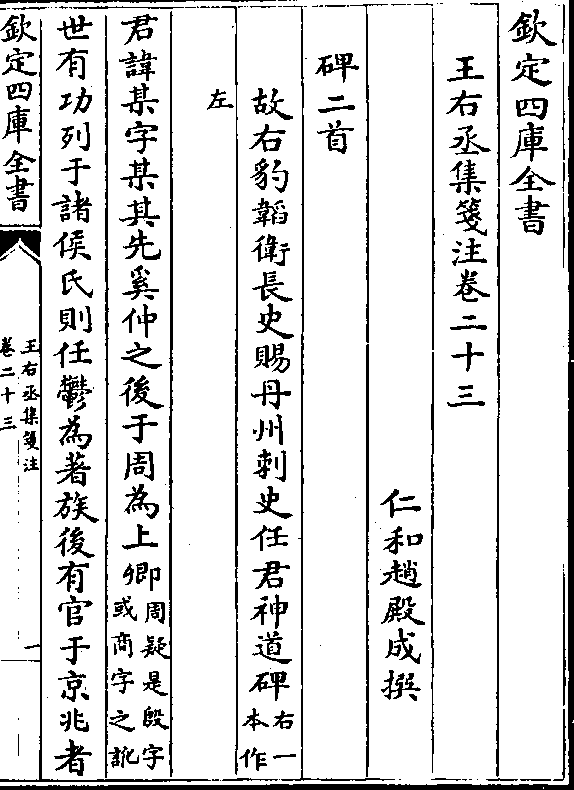 欽定四庫全書
王右丞集箋注卷二十三
仁和趙殿成撰
碑二首
故右豹韜衛長史賜丹州刺史任君神道碑右一本作
左
君諱某字某其先奚仲之後于周為上卿周疑是殷字即或商字之訛
世有功列于諸侯氏則任鬱為著族後有官于京兆者
欽定四庫全書
王右丞集箋注
卷二十三
一